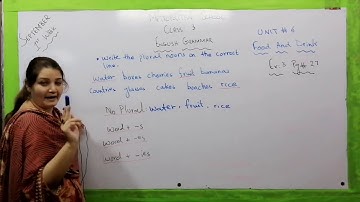 SEPTEMBER
1st Week
CLASS 3
ENGLISH GRAMMAR
UNIT # 6
Food And Drinks
Ex. 3 Pg# 27
• Write the plural nouns on the correct
line.
Water boxes cherries fruit bananas
Countries glasses cakes beaches rice
No Plural: Water, fruit, rice
Word + -s
Word + -es
Word + -ies